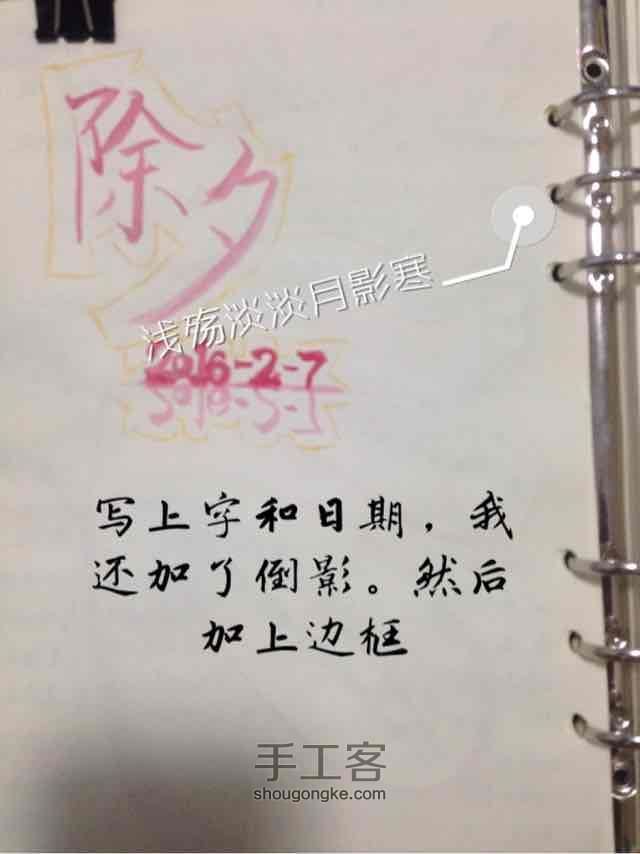 除夕
浅殇淡淡月影寒
2016-2-7
写上字和日期，我
还加了倒影。然后
加上边框
手工客
shougongke.com